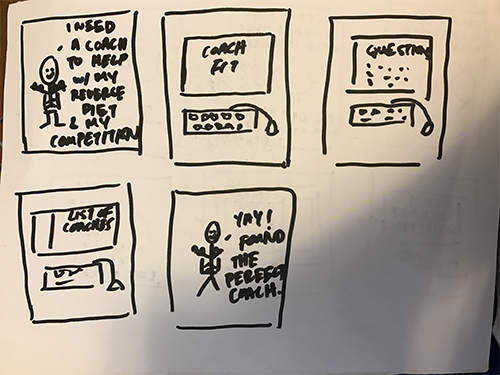 I NEED
A COACH
TO HELP
W/ MY
REVERSE
DIET
& MY
COMPETITION
COACH
FIT
QUESTION
LIST OF
COACHES
YAY!
FOUND
THE
PERFECT
COACH.